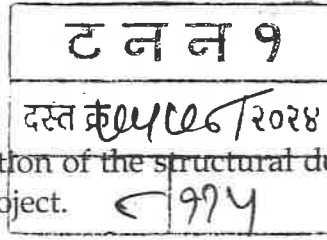 ट न न १
दस्त क्र /२०२४
tion of the structural du
oject. ८ ११५